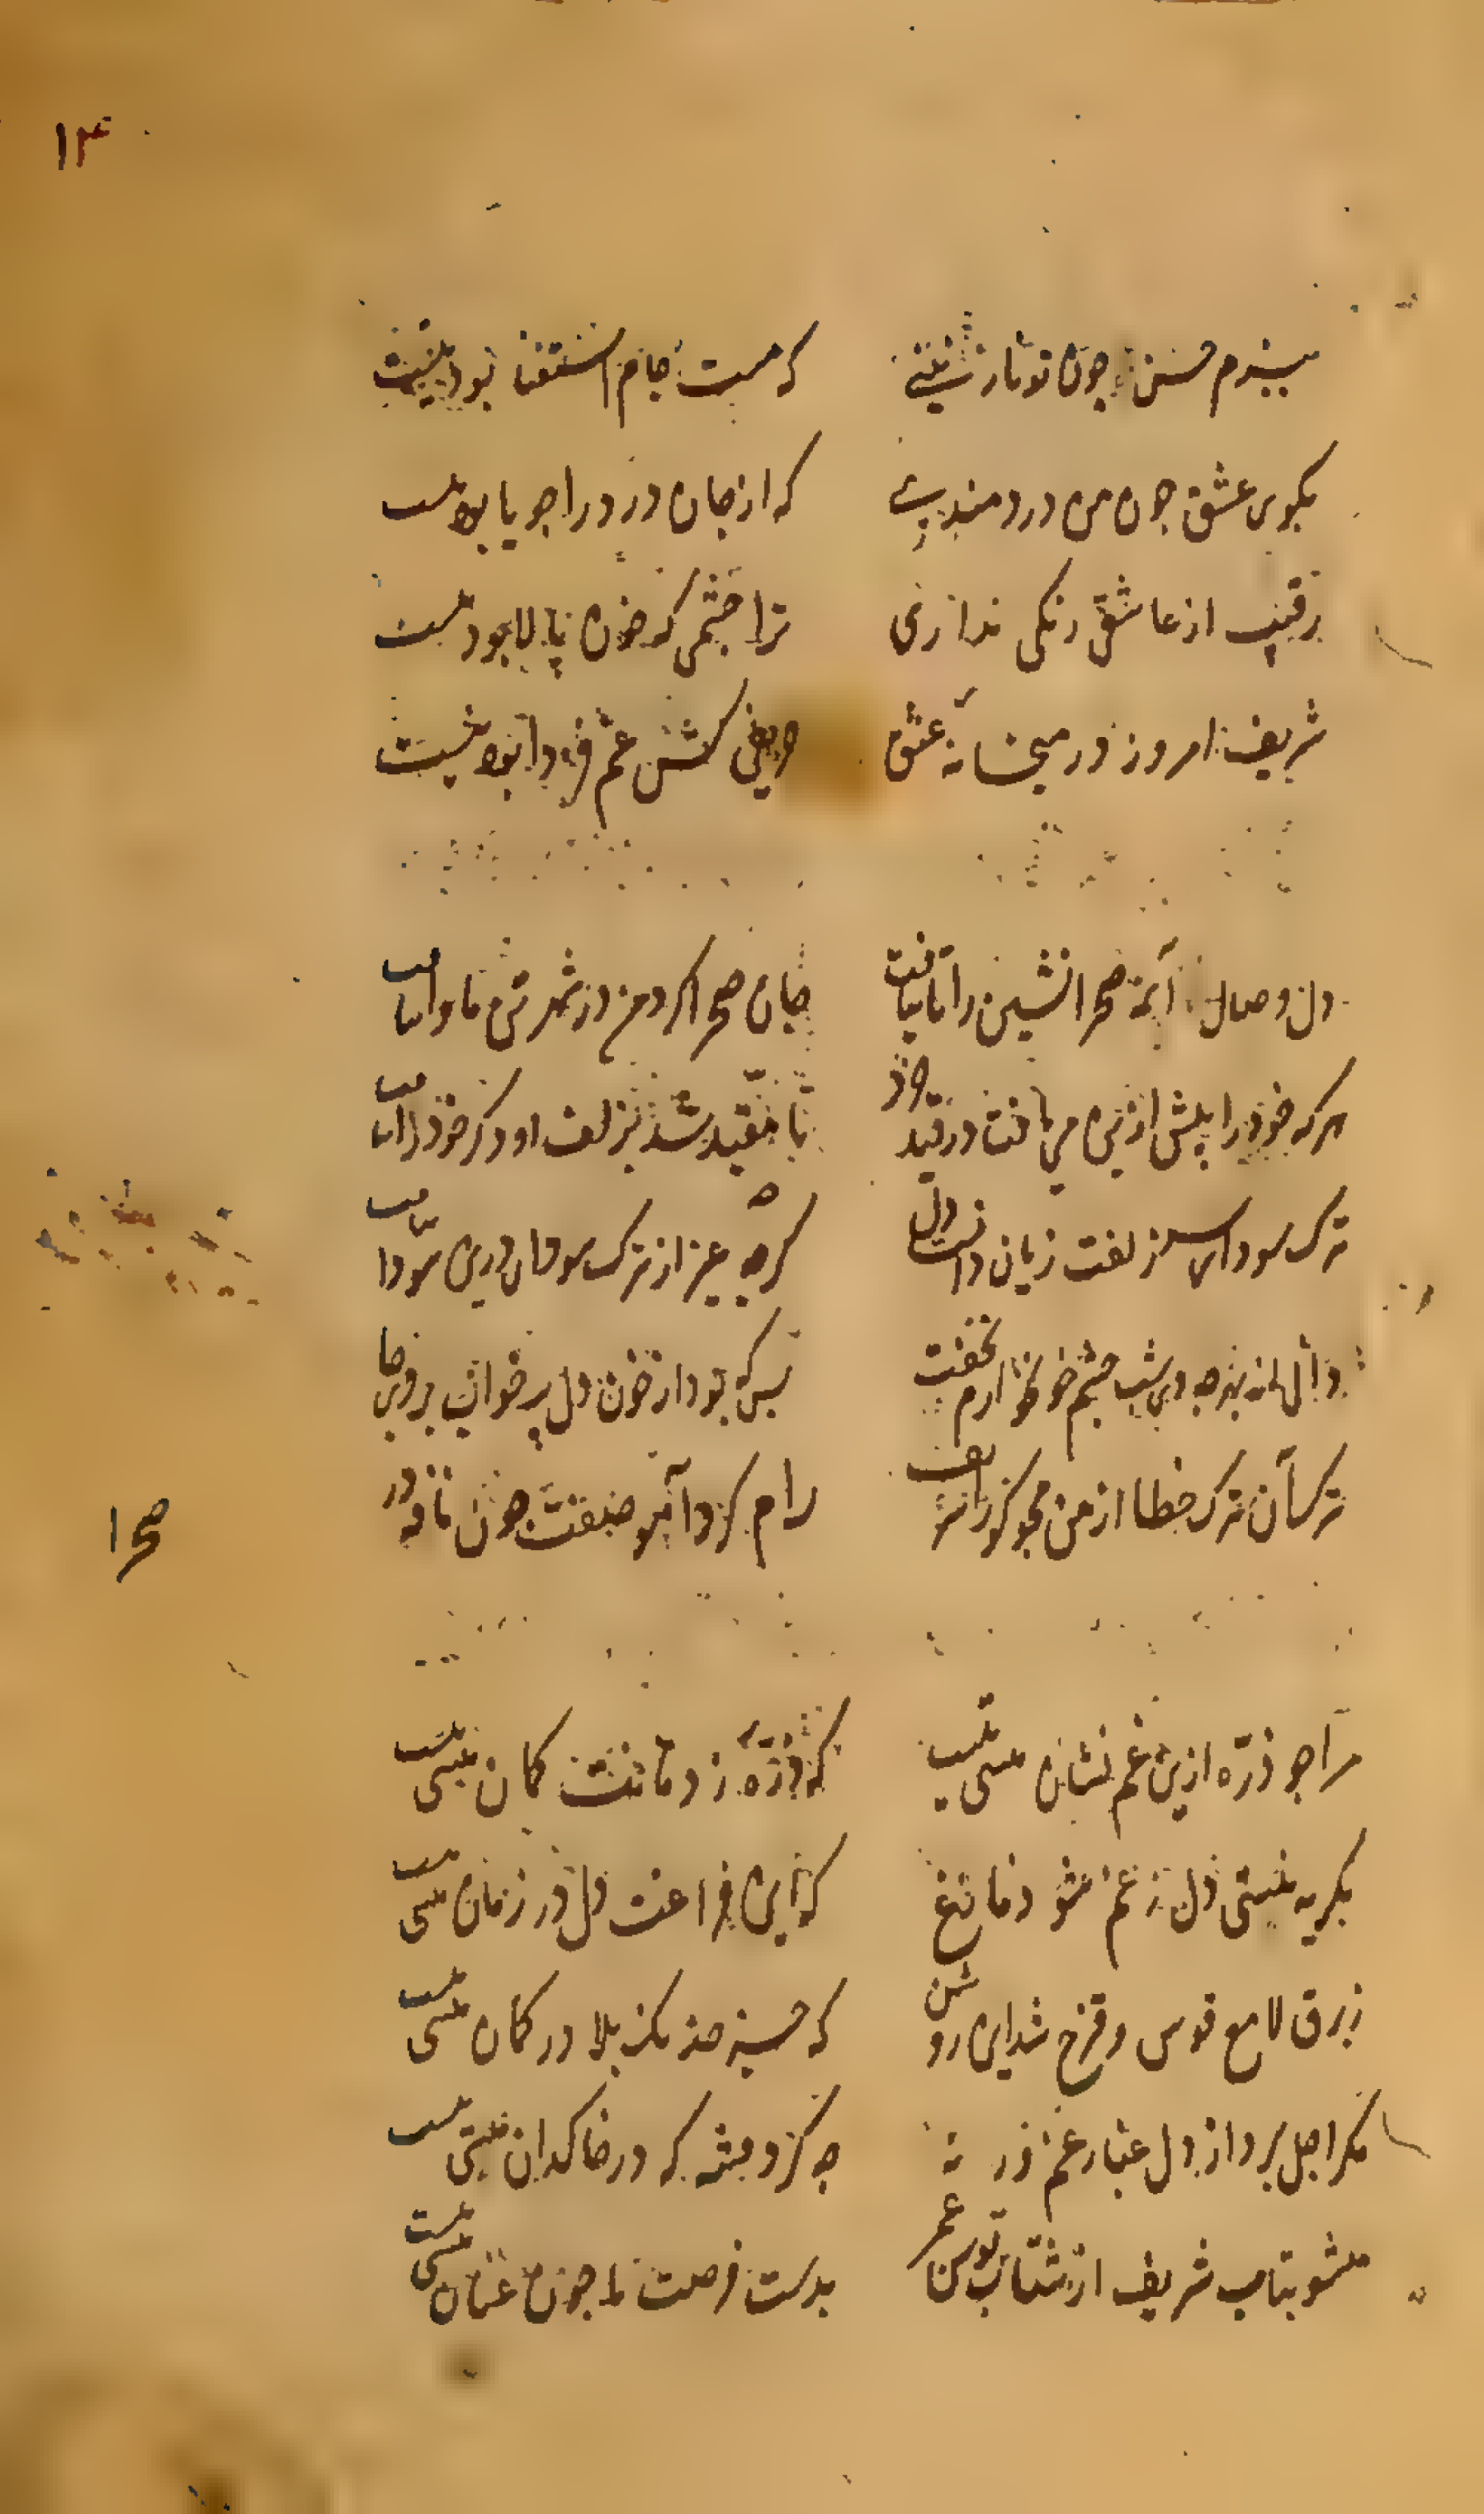 ۱۴
ببزم حسن چون تو نازنینی که مست جام استغنا بود نیست
بکوی عشق چون من دردمندی که از جان درد را جویا بود نیست
رقیب از عاشقی رنگی نداری ترا چشمی که خون پالا بود نیست
شریف امروز در میخانه عشق حریفی کش غم فردا بود نیست
دل وصال آن صحرانشین را تا نیافت جان صحرا کرد من در شهر تن ماوا نیافت
هر که خود را پیش ازین می یافت در قید خرد تا مقید شد بزلف او دگر خود را نیافت
ترک سودای سر زلفت زیان دانست دل گرچه غیر از ترک سر درین سودا نیافت
دی شب چشم خونخوارم نخفت بس که بود از خون دل پر خواب در وی جا نیافت
ترک آن ترک خطا از من مجو کز شریف رام کرد آهو صفت چون نافه در صحرا
مرا چو ذره ازین غم نشان هستی نیست که ذره ز دهانت گمان نیستی نیست
بگریه نیستی دل ز غم مشو فارغ که این فراغت دل در زمان هستی نیست
ز برق لامع قوس و قزح شد این روشن که جز خدنگ بلا در کمان هستی نیست
مگر اجل برد از دل غبار غم ور نه چه گرد فتنه که در خاکدان هستی نیست
مشو بتاب شریف از شتاب توسن عمر بدست فرصت ما چون عنان هستی نیست